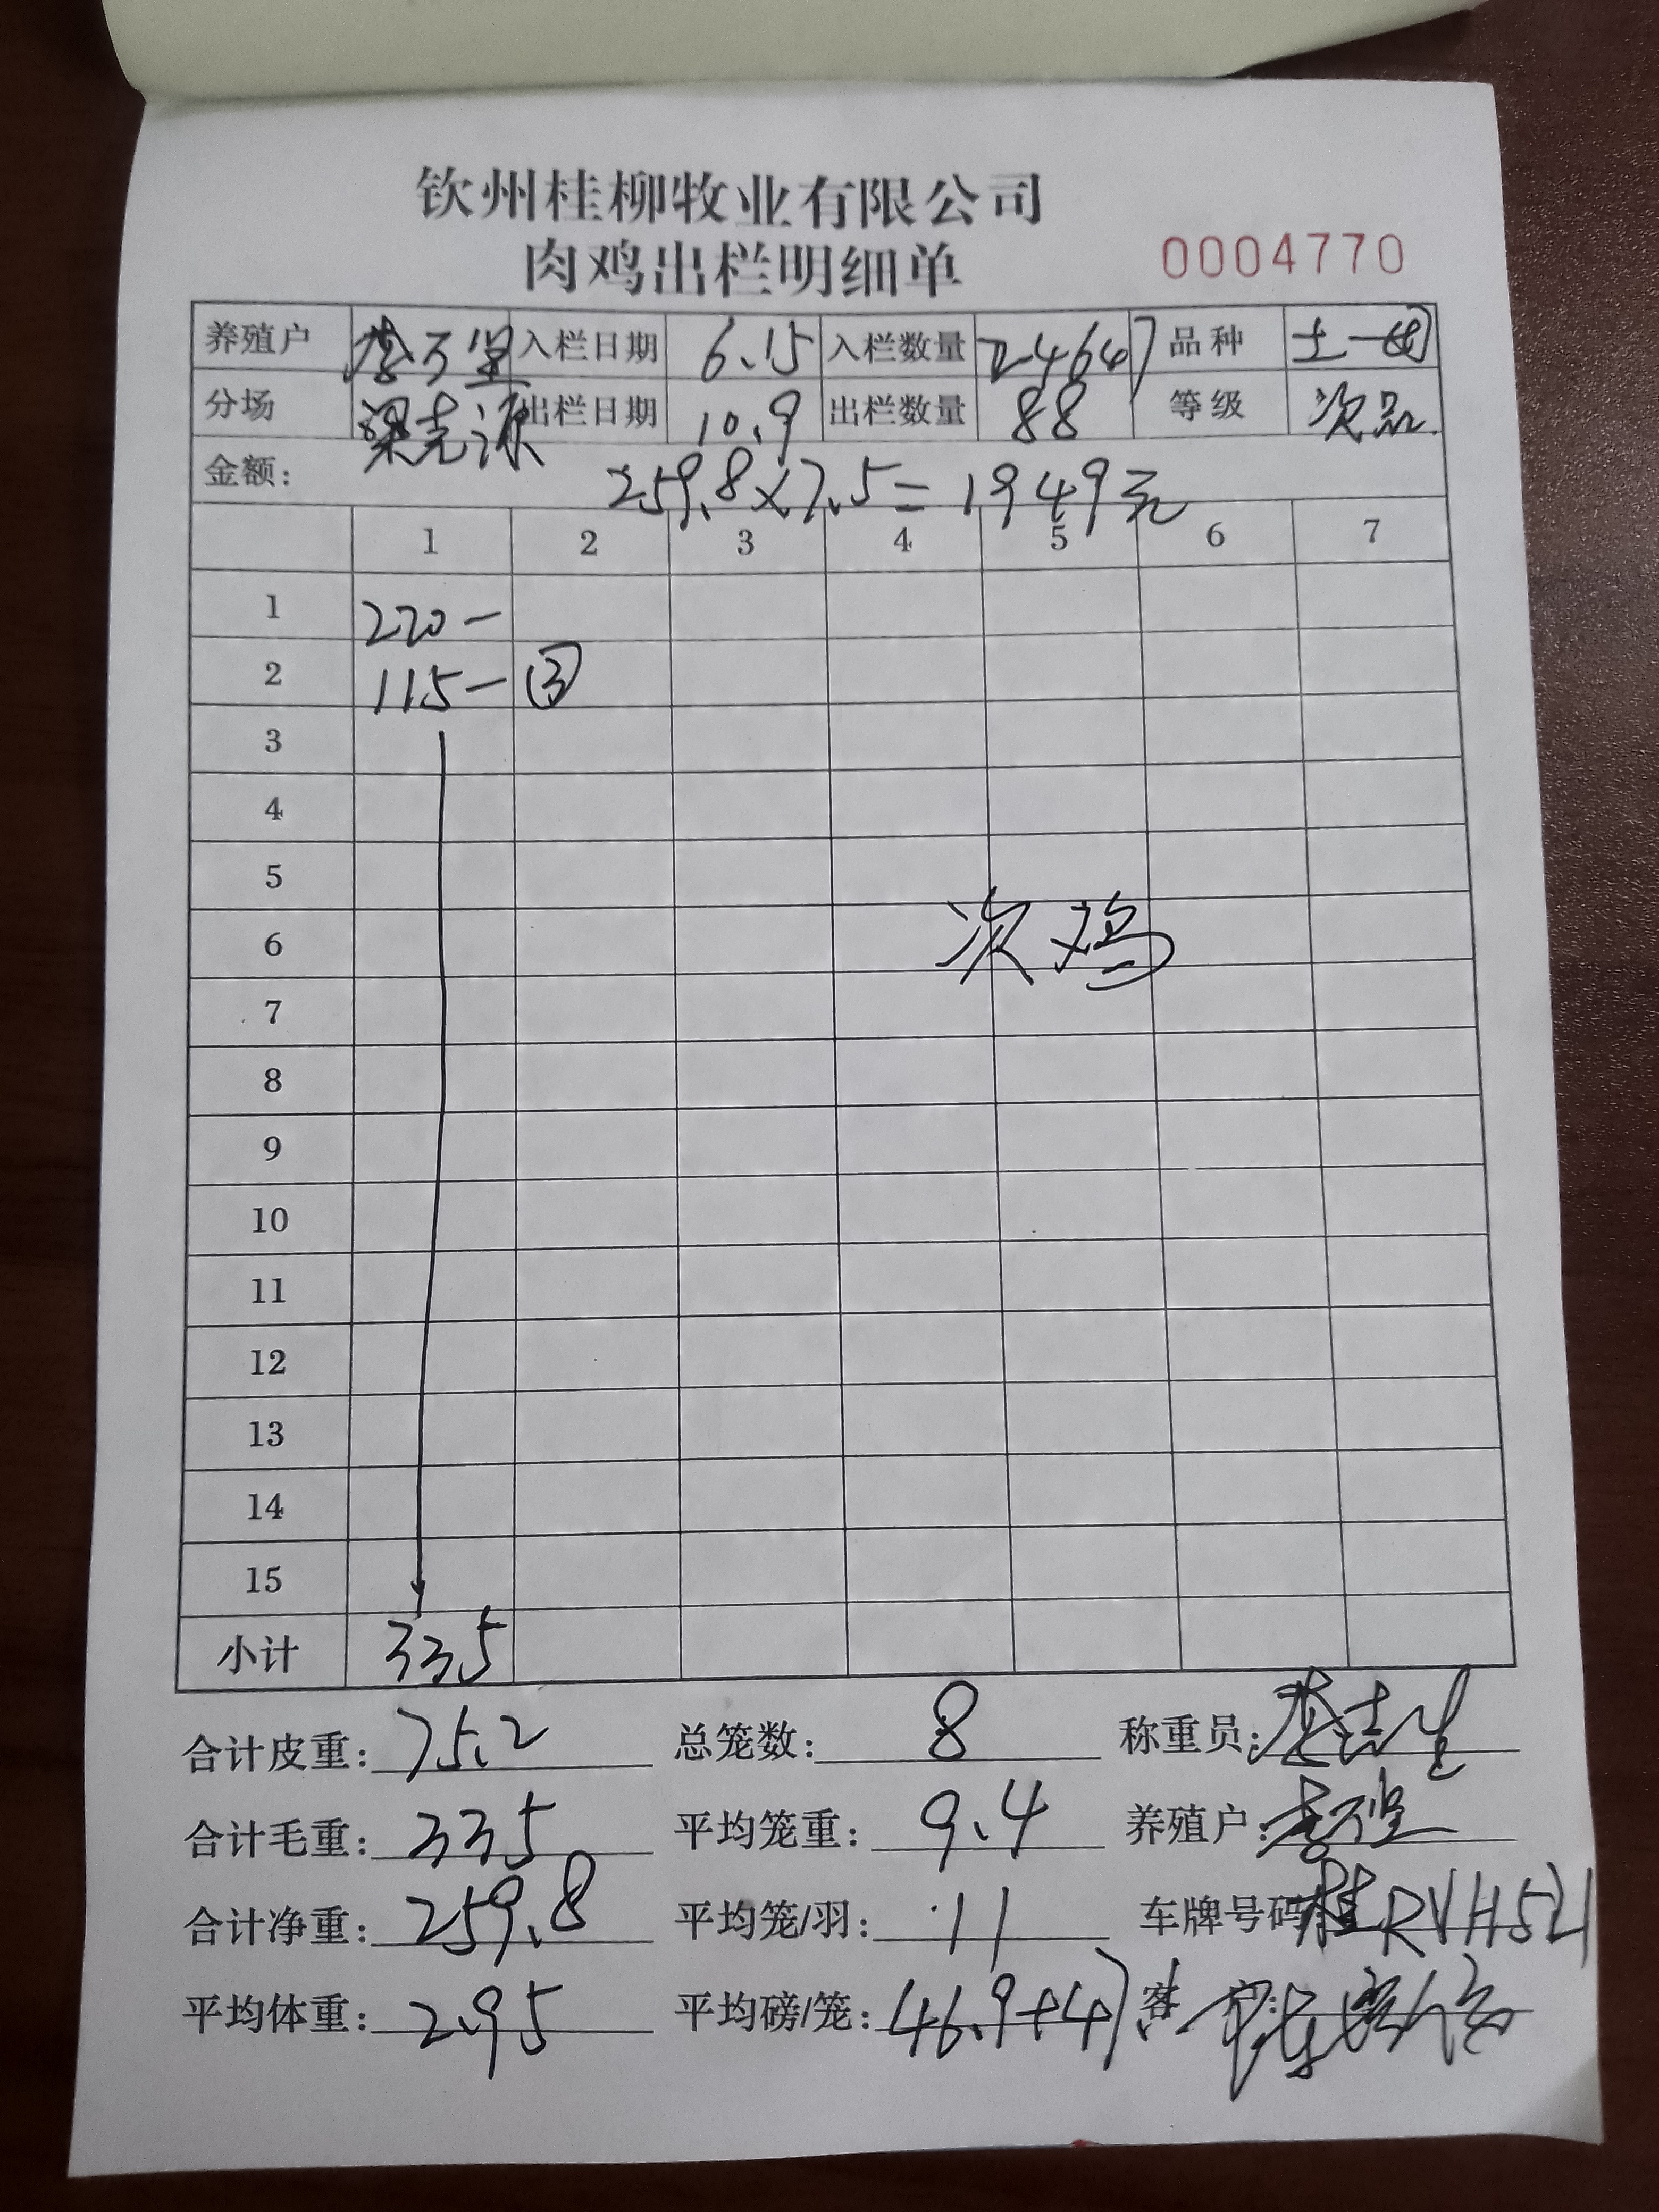 钦州桂柳牧业有限公司
肉鸡出栏明细单 0004770
养殖户 入栏日期 6.15 入栏数量 品种 土一
分场 梁克源 出栏日期 10.9 出栏数量 88 等级 次品.
金额: 259.8×7.5=1949元
1 2 3 4 5 6 7
1 220-
2 115-③
3
4
5
6 次鸡
7
8
9
10
11
12
13
14
15
小计 335
合计皮重: 75.2 总笼数: 8 称重员:
合计毛重: 335 平均笼重: 9.4 养殖户:
合计净重: 259.8 平均笼/羽: 11 车牌号码: 桂RVH521
平均体重: 2.95 平均磅/笼: 46.9+47 客户: